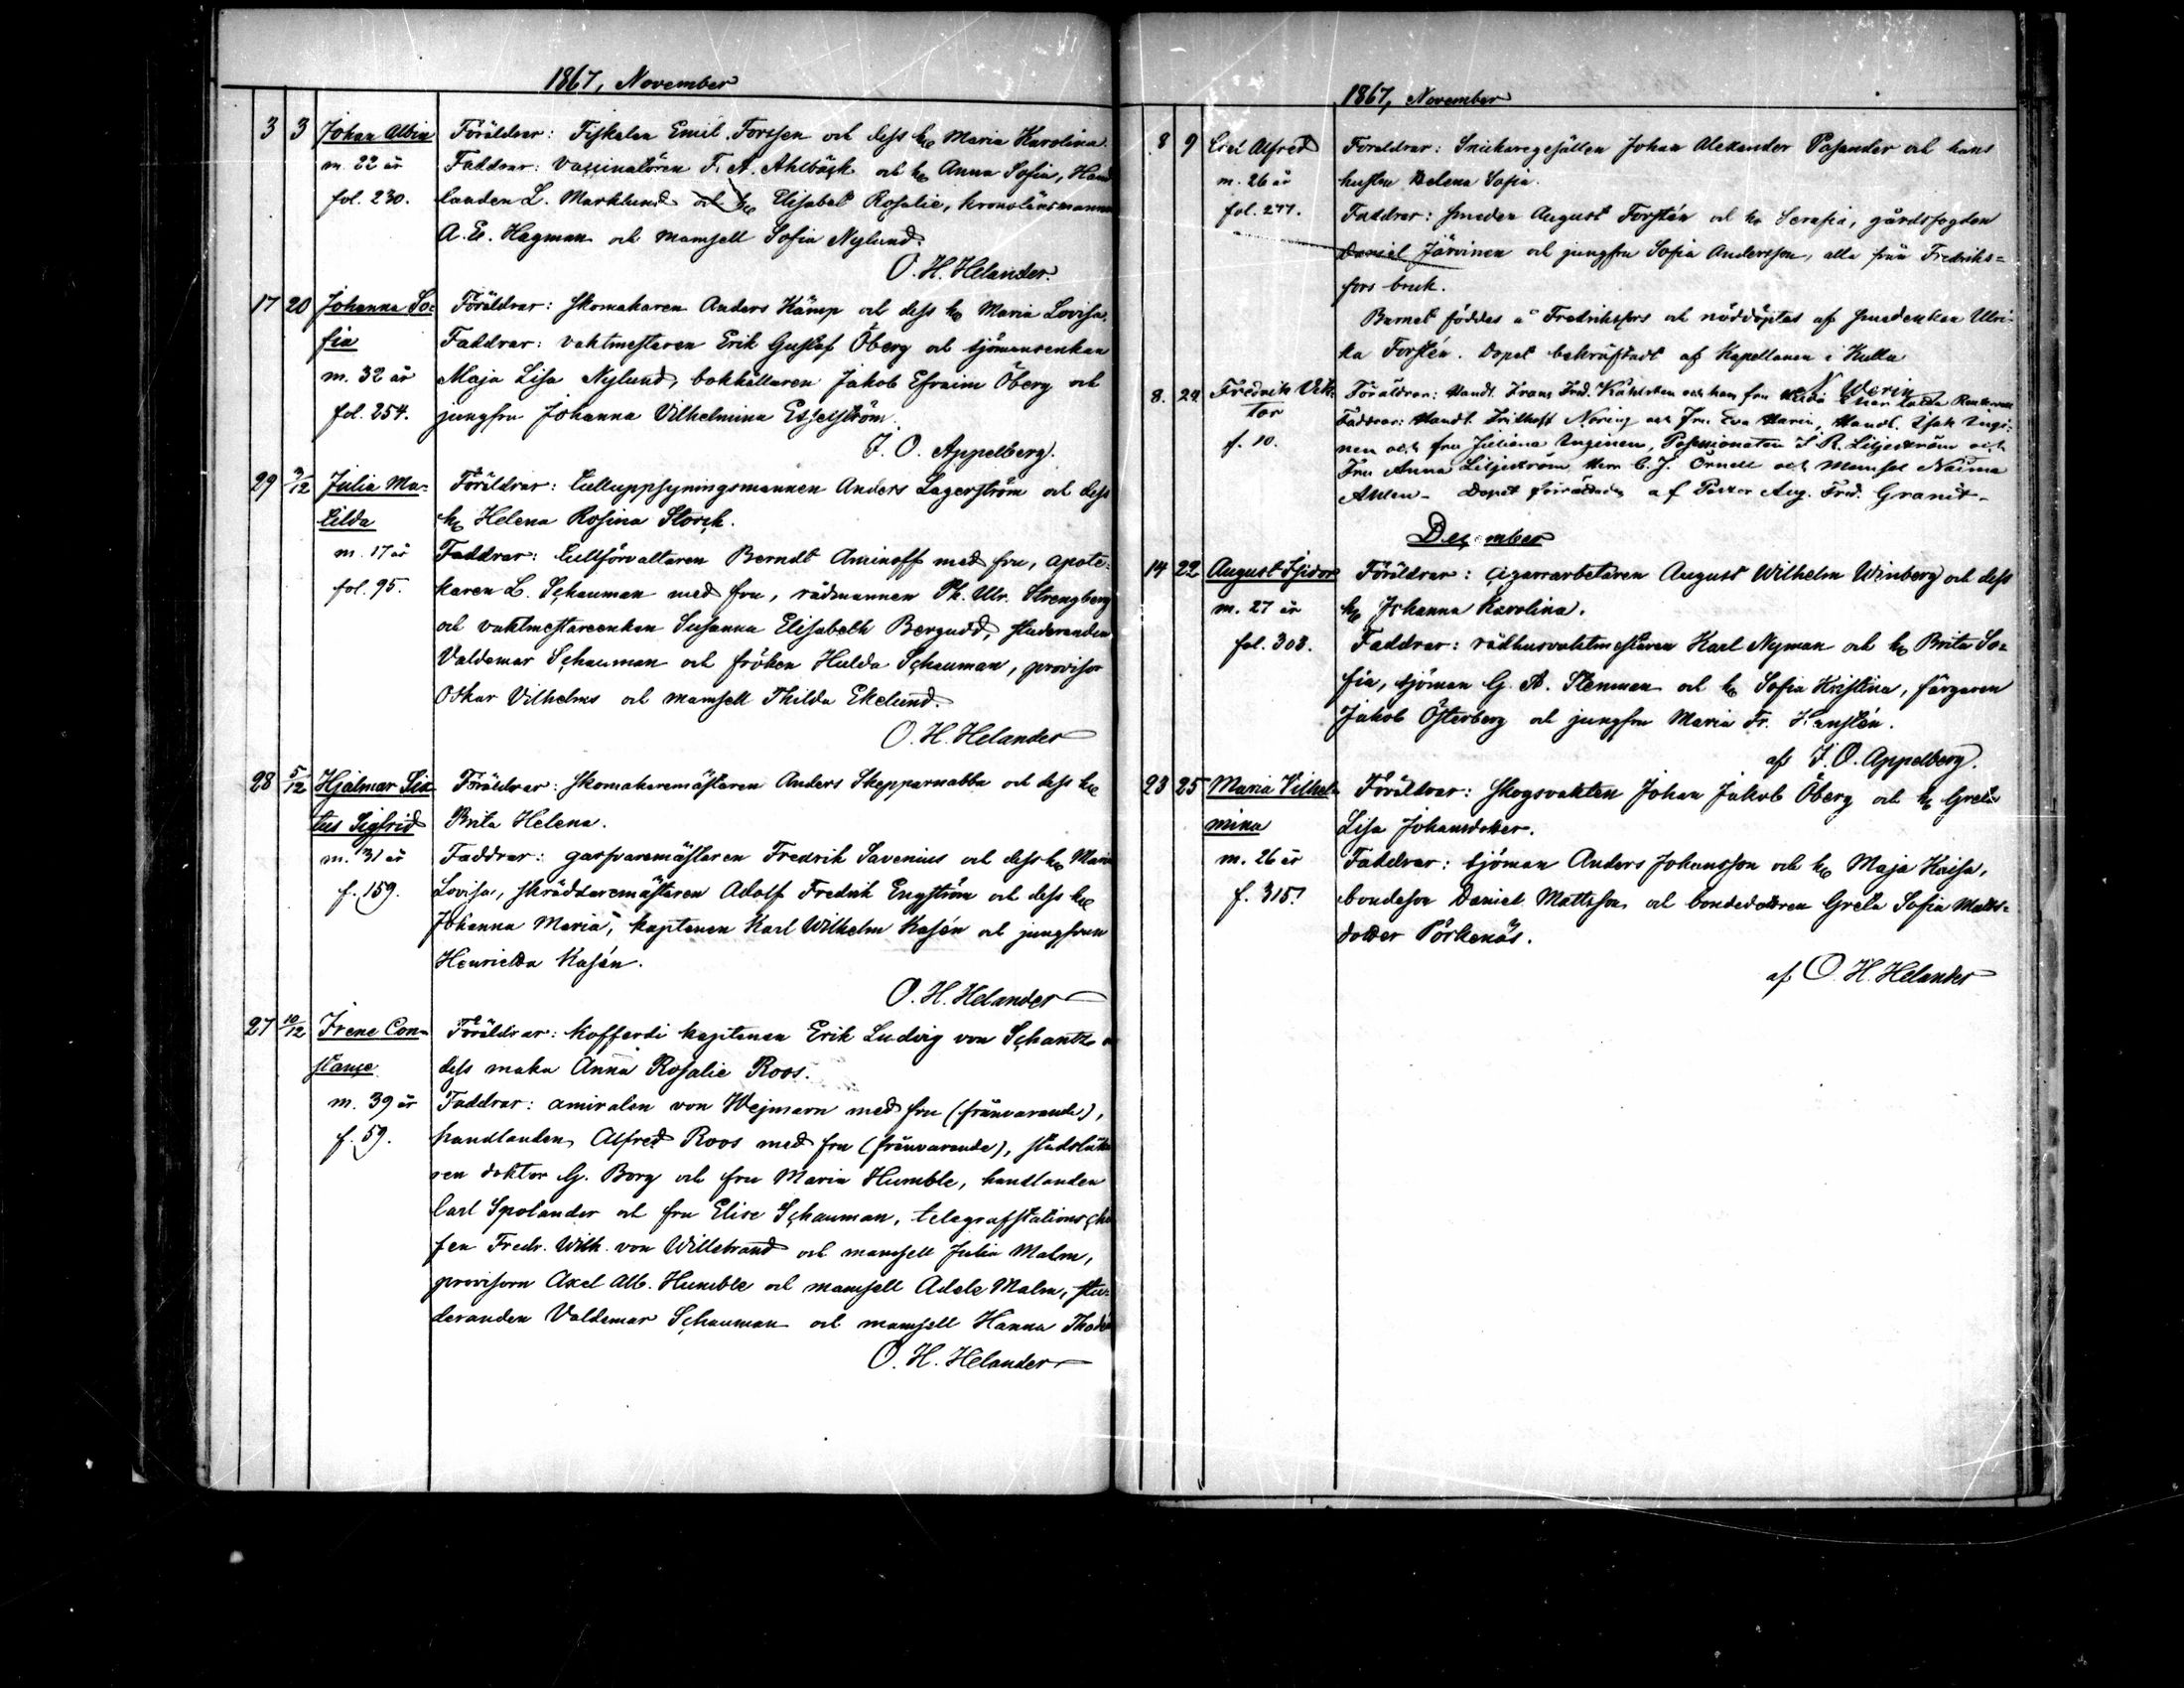 1867, November
3 3 Johan Albin Föräldrar: Fiskalen Emil Forssén och dess h. Maria Karolina.
m. 22 år Faddrar: vaccinatören F. A. Ahlbäck och h. Anna Sofia, Hand
fol. 230. landen L. Marklund och h. Elisabet Rosalie, kronolänsmannen
A. E. Hagman och mamsell Sofia Nylund.
O. H. Helander.
17 20 Johanna So- Föräldrar: skomakaren Anders Kämp och dess h. Maria Lovisa.
fia Faddrar: vaktmestaren Erik Gustaf Öberg och sjömansenkan
m. 32 år Maja Lisa Nylund, bokhållaren Jakob Efraim Öberg och
fol. 254. jungfru Johanna Vilhelmina
J. O. Appelberg.
29 3/12 Julia Ma- Föräldrar: tulluppsyningsmannen Anders Lagerström och dess
tilda h. Helena Rosina Storck.
m. 17 år Faddrar: tullförvaltaren Berndt Aminoff med fru, apote-
fol. 95. karen L. Schauman med fru, rådmannen Ph. Ulr. Strengberg
och vaktmestareenkan Susanna Elisabeth Bergudd, studeranden
Valdemar Schauman och fröken Hulda Schauman, provisor
Oskar Vilhelms och mamsell Thilda Ekelund.
O. H. Helander
28 5/12 Hjalmar Six- Föräldrar: skomakaremästaren Anders Skepparnabba och dess h.
tus Sigfrid Brita Helena.
m. 31 år Faddrar: garfvaremästaren Fredrik Savenius och dess h. Maria
f. 159. Lovisa, skräddaremästaren Adolf Fredrik Engström och dess h.
Johanna Maria, kaptenen Karl Wilhelm Kasén och jungfrun
Henrietta Kasén.
O. H. Helander
27 10/12 Irene Con- Föräldrar: kofferdi kaptenen Erik Ludvig von Schantz o
stance dess maka Anna Rosalie Roos.
m. 39 år Faddrar: amiralen von Wejmarn med fru (frånvarande),
f. 59. handlanden Alfred Roos med fru (frånvarande), stadsläka
ren doktor G. Borg och fru Maria Humble, handlanden
Carl Spolander och fru Elise Schauman, telegrafstationsche
fen Fredr. Wilh. von Willebrand och mamsell Julia Malm,
provisorn Axel Alb. Humble och mamsell Adele Malm, stu-
deranden Valdemar Schauman och mamsell Hanna Thodén
O. H. Helander
1867, November
8 9 Carl Alfred Föräldrar: Snickaregesällen Johan Alexander Pasander och hans
m. 26 år hustru Helena Sofia.
fol. 277. Faddrar: smeden August Forstén och h. Serafia, gårdsfogden
Daniel Järvinen och jungfru Sofia Andersson, alla från Fredriks-
fors bruk.
Barnet föddes å Fredriksfors och nöddöptes af smedenkan Ulri-
ka Forstén. Dopet bekräftadt af Kapellanen i Kulla
N. Werin
8. 24. Fredrik Vik- Föräldrar: Handl. Frans Fred. och hans fru
tor Faddrar: Handl. Fridthof Nering och Fru Eva Maria, Handl. Isak Ingi-
f. 10. nen och fru Juliana Inginen, Possessionaten J. R. Liljeström och
Fru Anna Liljeström, Herr C. J. Örnell och Mamsel Naima
Ahlen. Dopet förrättades af Pastor Aug. Fred. Granit.
December
14 22 August Isidor Föräldrar: cigarrarbetaren August Wilhelm Winberg och dess
m. 27 år h. Johanna Karolina.
fol. 303. Faddrar: rådhusvaktmestaren Karl Nyman och h. Brita So-
fia, sjöman G. A. Stenman och h. Sofia Kristina, färgaren
Jakob Österberg och jungfru Maria Fr.
af J. O. Appelberg.
23 25 Maria Vilhel- Föräldrar: skogsvakten Johan Jakob Öberg och h. Greta
mina Lisa Johansdotter.
m. 26 år Faddrar: sjöman Anders Johansson och h. Maja Kaisa,
f. 315. bondeson Daniel Mattsson och bondedottren Greta Sofia Matts-
dotter Pörkenäs.
af O. H. Helander